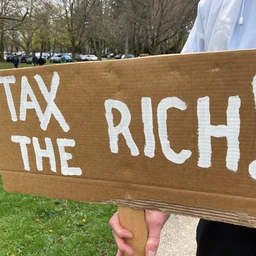 TAX
THE RICH!